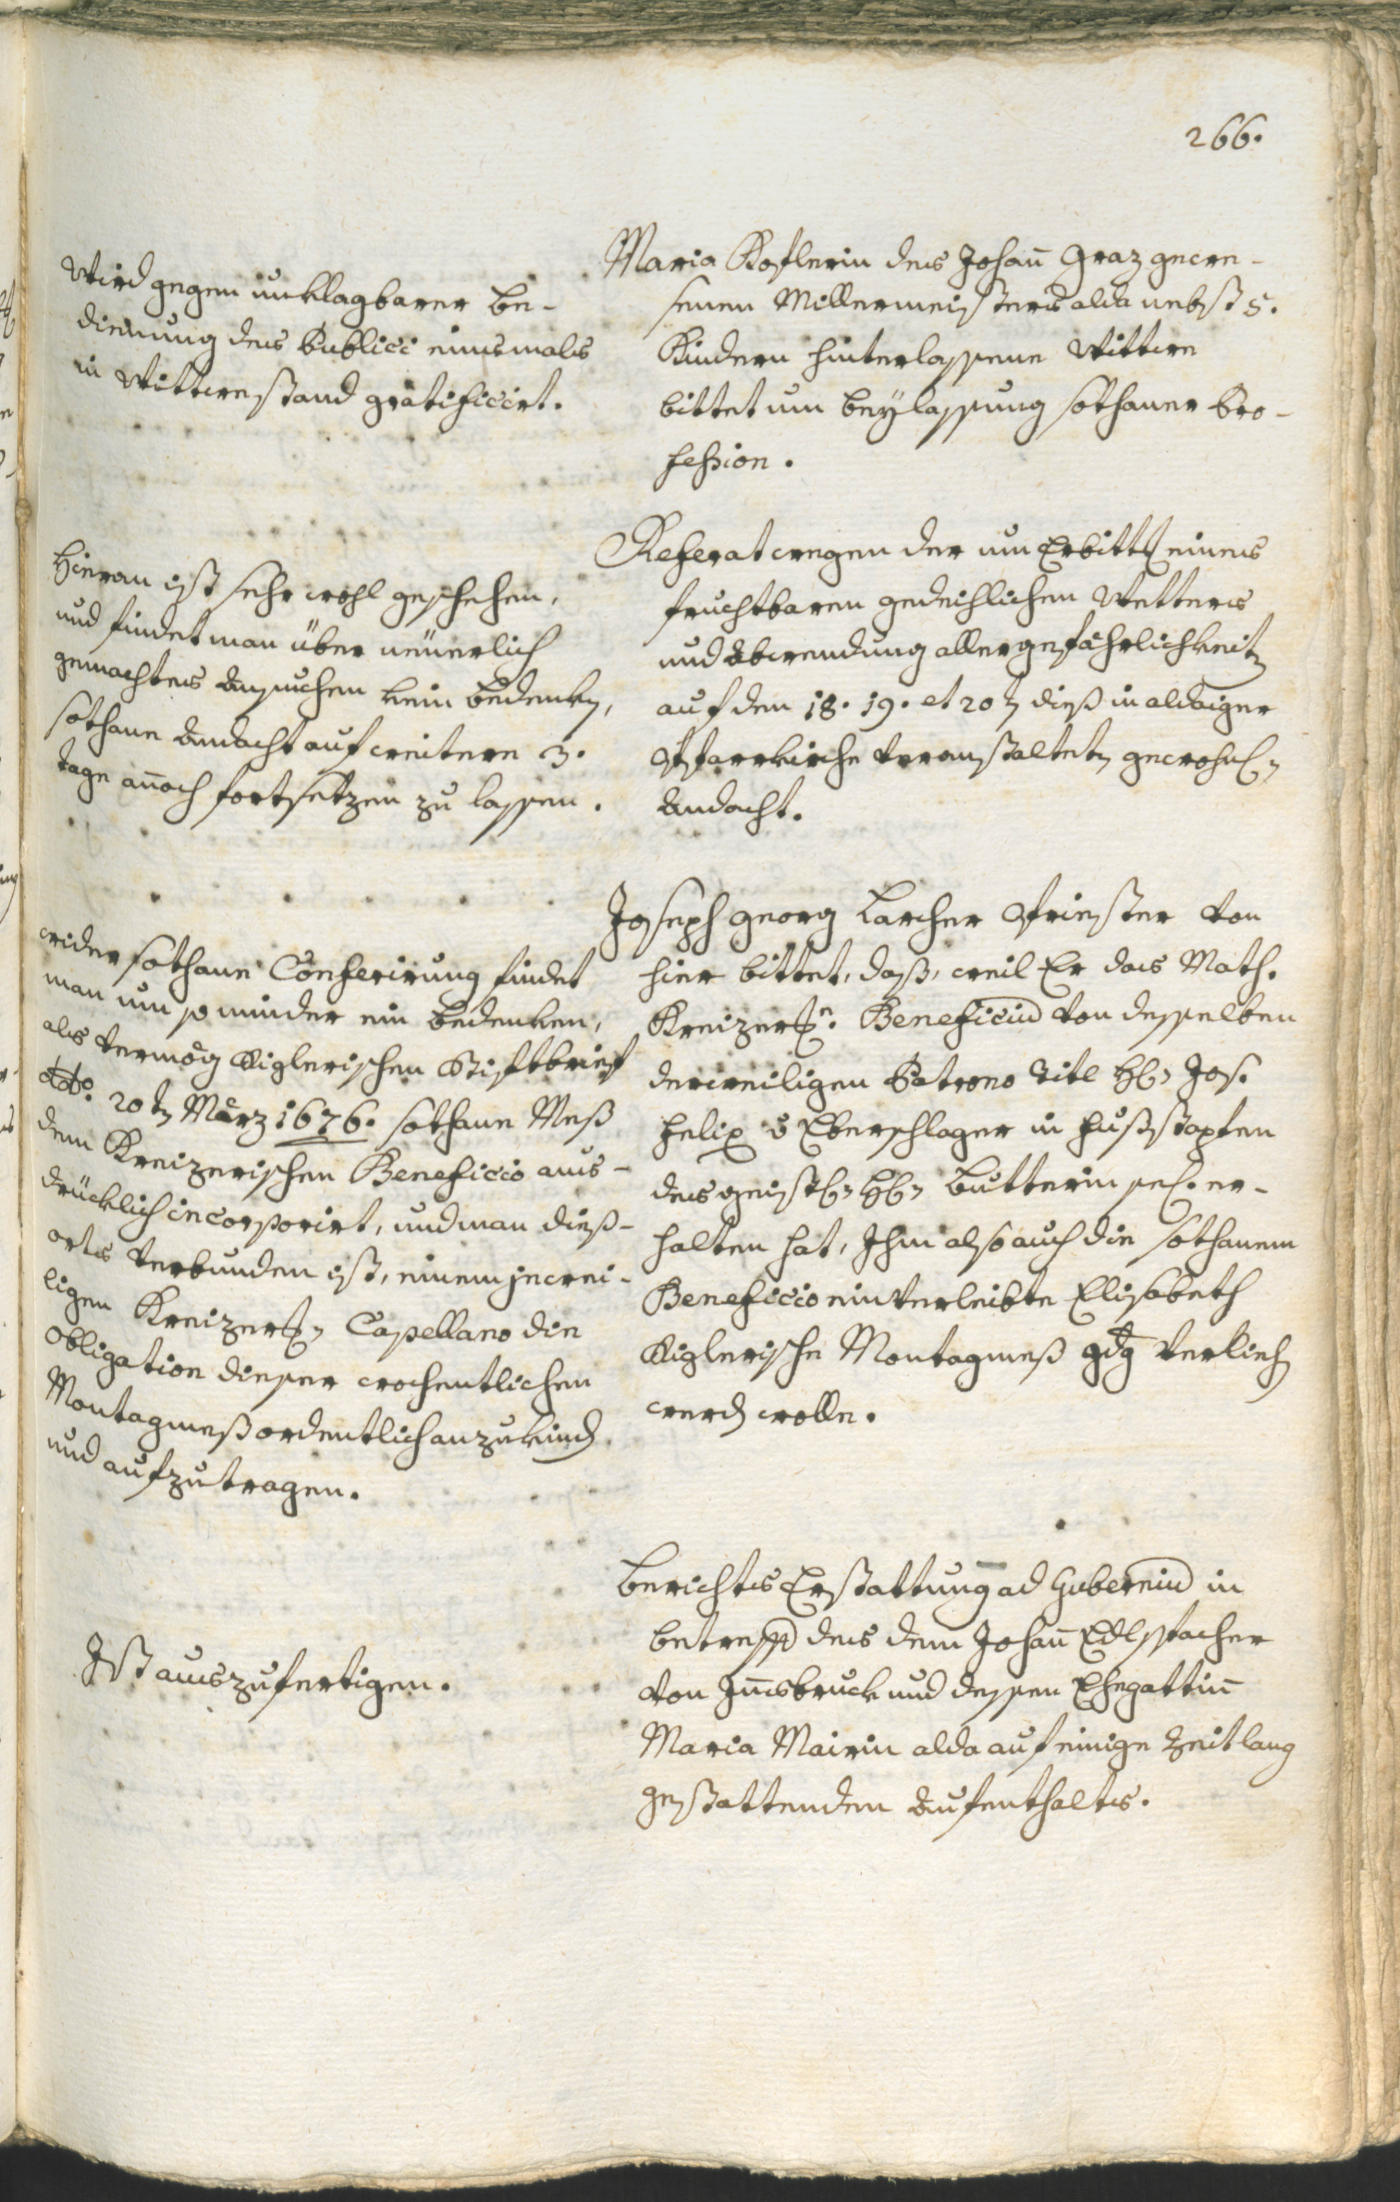 266.
Maria Koflerin des Johann Graz gewe-
senen Millermeisters alda nebst 5.
Kindern hinterlassene Wittwe
bittet um beylassung sothaner Pro-
feßion.
Wird gegen unklagbarer Be-
dienung des Publici einsmals
in Wittwenstand gratificirt.
Referat wegen der um Erbittung eines
fruchtbaren gedeihlichen Wetters
und Abwendung aller gefährlichkeiten
auf den 18. 19. et 20ten dieß in aldaiger
Pfarrkirche veranstalteten gewohnl.
Andacht.
Hieran ist sehr wohl geschehen,
und findet man über neuerlich
gemachtes Ansuchen kein bedenken,
sothane Andacht auf weitere 3.
täge annoch fortsetzen zu lassen.
Joseph Georg Larcher Priester von
hier bittet, daß, weil Er das Math.
Kreizerische Beneficium von desselben
derweiligen Patrono Titl H: Jos.
Felix v Eberschlager in Fußstapfen
des geistl: H: Butterin sel. er-
halten hat, Ihm also auch die sothanem
Beneficio einverleibte Elisabeth
Aiglerische Montagmeß gdg verliehen
werden wolle.
wider sothane Conferirung findet
man um so minder ein bedenken,
als vermög Aiglerischen Stiftbrief
ddto. 20ten März 1676. sothane Meß
dem Kreizerischen Beneficio aus-
drücklich incorporirt, und man dieß-
orts verbunden ist, einem jewei-
ligen Kreizerischen Capellano die
obligation dieser wochentlichen
Montagmeß ordentlich anzukünden
und aufzutragen.
Berichts Erstattung ad Gubernium in
betreff des dem Johann Edlspacher
von Innsbruck und dessen Ehegattin
Maria Mairin alda auf einige Zeitlang
gestattenden Aufenthalts.
Ist auszufertigen.